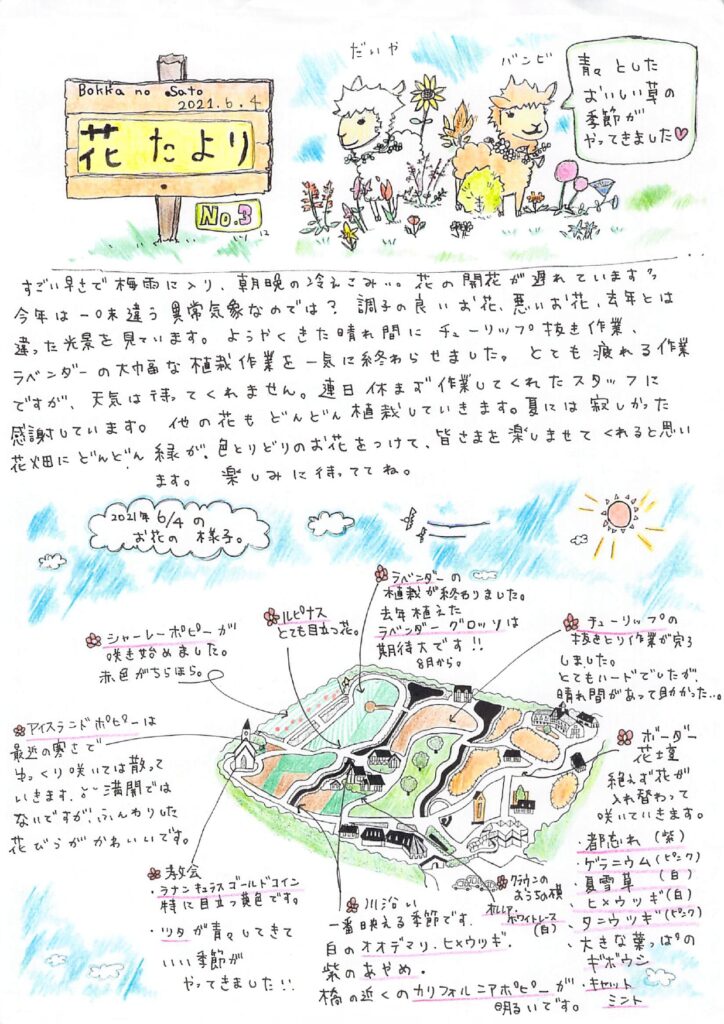 Bokka no Sato
2021.6.4
花たより
No.3
だいや
バンビ
青々とした
おいしい草の
季節が
やってきました♥
すごい早さで梅雨に入り、朝晩の冷えこみ…。花の開花が遅れています。
今年は一味違う異常気象なのでは？調子の良いお花、悪いお花、去年とは
違った光景を見ています。ようやくきた晴れ間にチューリップ抜き作業、
ラベンダーの大幅な植栽作業を一気に終わらせました。とても疲れる作業
ですが、天気は待ってくれません。連日休まず作業してくれたスタッフに
感謝しています。他の花もどんどん植栽していきます。夏には寂しかった
花畑にどんどん緑が、色とりどりのお花をつけて、皆さまを楽しませてくれると思い
ます。楽しみに待っててね。
2021年6/4の
お花の様子。
ラベンダーの
植栽が終わりました。
去年植えた
ラベンダーグロッソは
期待大です!!
8月から。
ルピナス
とても目立つ花。
シャーレーポピーが
咲き始めました。
赤色がちらほら。
チューリップの
抜きとり作業が完了
しました。
とてもハードでしたが、
晴れ間があって助かった…。
アイスランドポピーは
最近の寒さで
ゆっくり咲いては散って
いきます。満開では
ないですが、ふんわりした
花びらがかわいいです。
ボーダー
花壇
絶えず花が
入れ替わって
咲いていきます。
・都忘れ(紫)
・ゲラニウム(ピンク)
・夏雪草(白)
・ヒメウツギ(白)
・タニウツギ(ピンク)
・大きな葉っぱの
ギボウシ
・キャット
ミント
教会
・ラナンキュラスゴールドコイン
特に目立つ黄色です。
・ツタが青々してきて
いい季節が
やってきました!!
川沿い
一番映える季節です。
白のオオデマリ、ヒメウツギ、
紫のあやめ。
橋の近くのカリフォルニアポピーが
明るいです。
クラウンの
おうちの横
オルレア
ホワイトレース
(白)